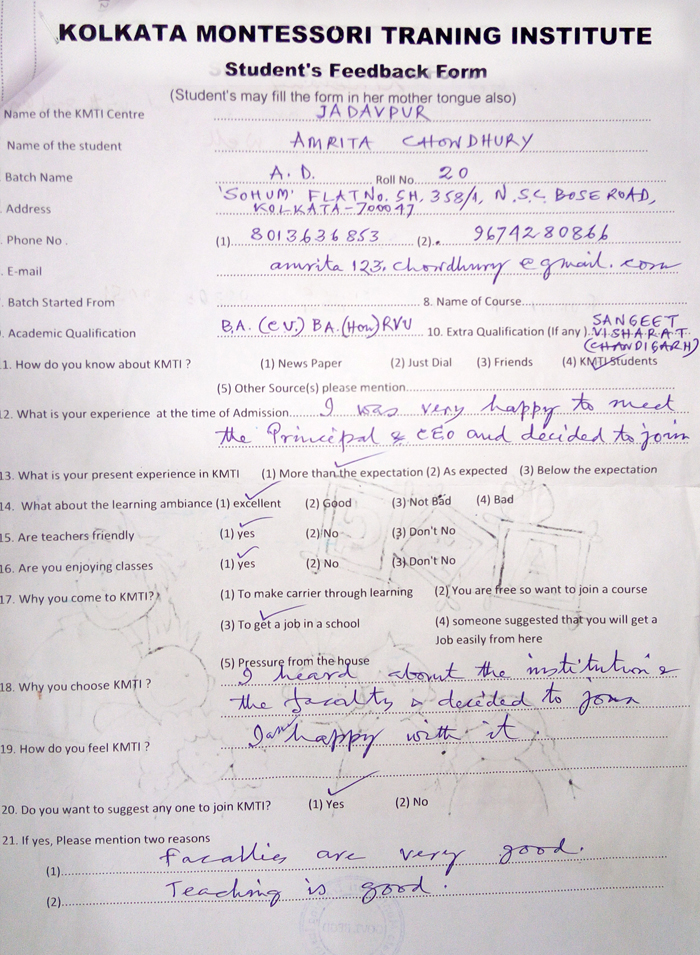 KOLKATA MONTESSORI TRANING INSTITUTE
Student's Feedback Form
(Student's may fill the form in her mother tongue also)
Name of the KMTI Centre JADAVPUR
Name of the student AMRITA CHOWDHURY
Batch Name A.D. Roll No. 20
Address 'SOHUM' FLAT No. SH, 358/1, N.S.C. BOSE ROAD,
KOLKATA-700047
Phone No. (1) 8013636853 (2) 9674280866
E-mail amrita123.chowdhury@gmail.com
Batch Started From 8. Name of Course
Academic Qualification B.A. (CU) BA.(Hon) RVU 10. Extra Qualification (If any) SANGEET
VISHARAT
(CHANDIGARH)
1. How do you know about KMTI ? (1) News Paper (2) Just Dial (3) Friends (4) KMTI Students
(5) Other Source(s) please mention
2. What is your experience at the time of Admission I was very happy to meet
the Principal & CEO and decided to join
13. What is your present experience in KMTI (1) More than the expectation (2) As expected (3) Below the expectation
14. What about the learning ambiance (1) excellent (2) Good (3) Not Bad (4) Bad
15. Are teachers friendly (1) yes (2) No (3) Don't No
16. Are you enjoying classes (1) yes (2) No (3) Don't No
17. Why you come to KMTI? (1) To make carrier through learning (2) You are free so want to join a course
(3) To get a job in a school (4) someone suggested that you will get a
Job easily from here
(5) Pressure from the house
18. Why you choose KMTI ? I heard about the institution &
the faculty & decided to join
19. How do you feel KMTI ? I am happy with it.
20. Do you want to suggest any one to join KMTI? (1) Yes (2) No
21. If yes, Please mention two reasons
(1) facalties are very good.
(2) Teaching is good.